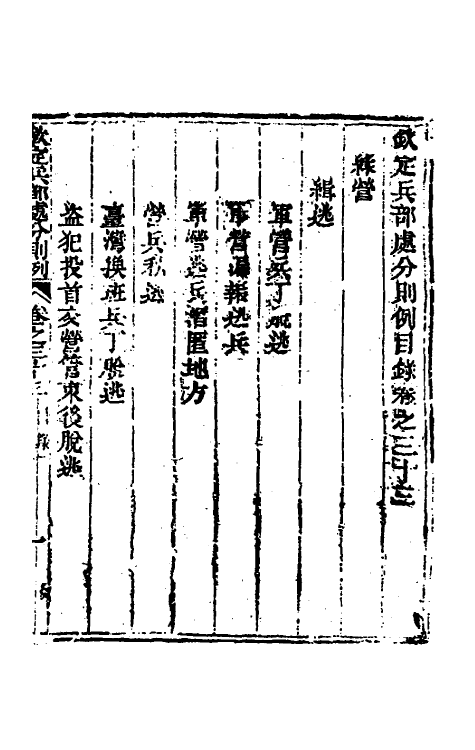 欽定兵部處分則例目錄卷之三十三
綠營
緝逃
軍營兵丁脫逃
軍營濫報逃兵
軍營逃兵潛匿地方
營兵私逃
臺灣換班兵丁脫逃
盜犯投首交營管束後脫逃
欽定兵部處分則例 卷之三十三